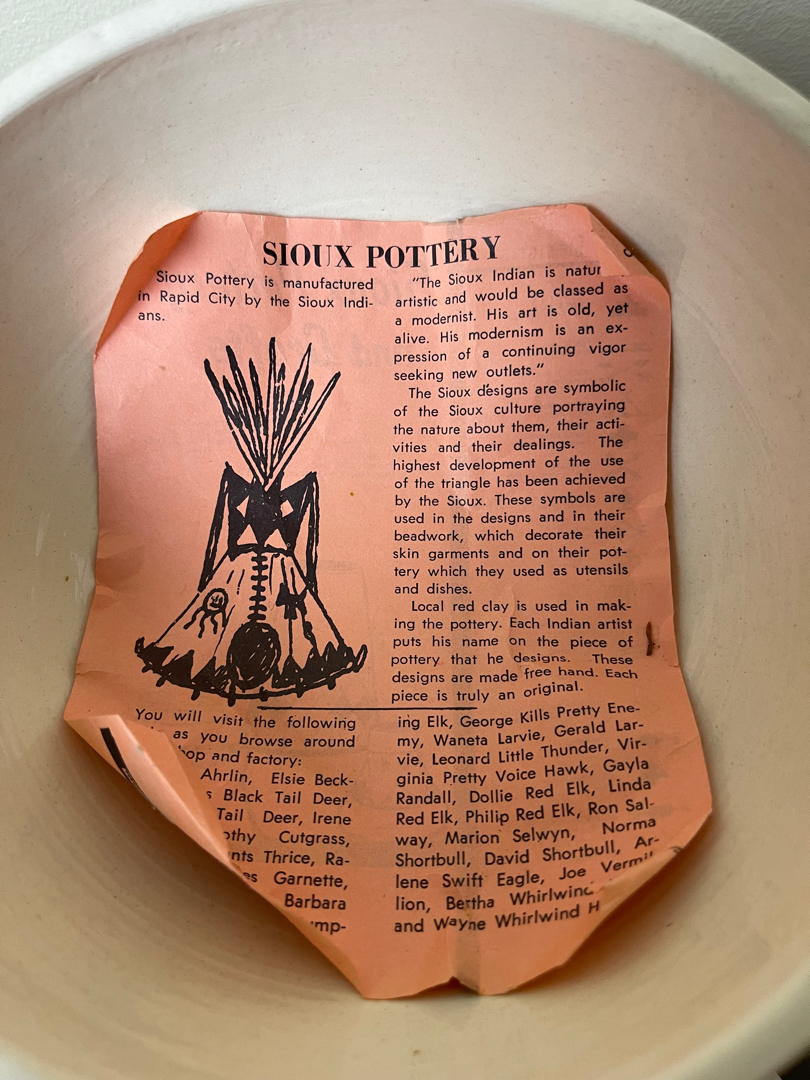 SIOUX POTTERY
Sioux Pottery is manufactured
in Rapid City by the Sioux Indi-
ans.
"The Sioux Indian is
artistic and would be classed as
a modernist. His art is old, yet
alive. His modernism is an ex-
pression of a continuing vigor
seeking new outlets."
The Sioux designs are symbolic
of the Sioux culture portraying
the nature about them, their acti-
vities and their dealings. The
highest development of the use
of the triangle has been achieved
by the Sioux. These symbols are
used in the designs and in their
beadwork, which decorate their
skin garments and on their pot-
tery which they used as utensils
and dishes.
Local red clay is used in mak-
ing the pottery. Each Indian artist
puts his name on the piece of
pottery that he designs. These
designs are made free hand. Each
piece is truly an original.
You will visit the following
as you browse around
and factory:
Ahrlin, Elsie Beck-
Black Tail Deer,
Tail Deer, Irene
Cutgrass,
Thrice, Ra-
Garnette,
Barbara
ing Elk, George Kills Pretty Ene-
my, Waneta Larvie, Gerald Lar-
vie, Leonard Little Thunder, Vir-
ginia Pretty Voice Hawk, Gayla
Randall, Dollie Red Elk, Linda
Red Elk, Philip Red Elk, Ron Sal-
way, Marion Selwyn, Norma
Shortbull, David Shortbull, Ar-
lene Swift Eagle, Joe Vermil-
lion, Bertha Whirlwind
and Wayne Whirlwind